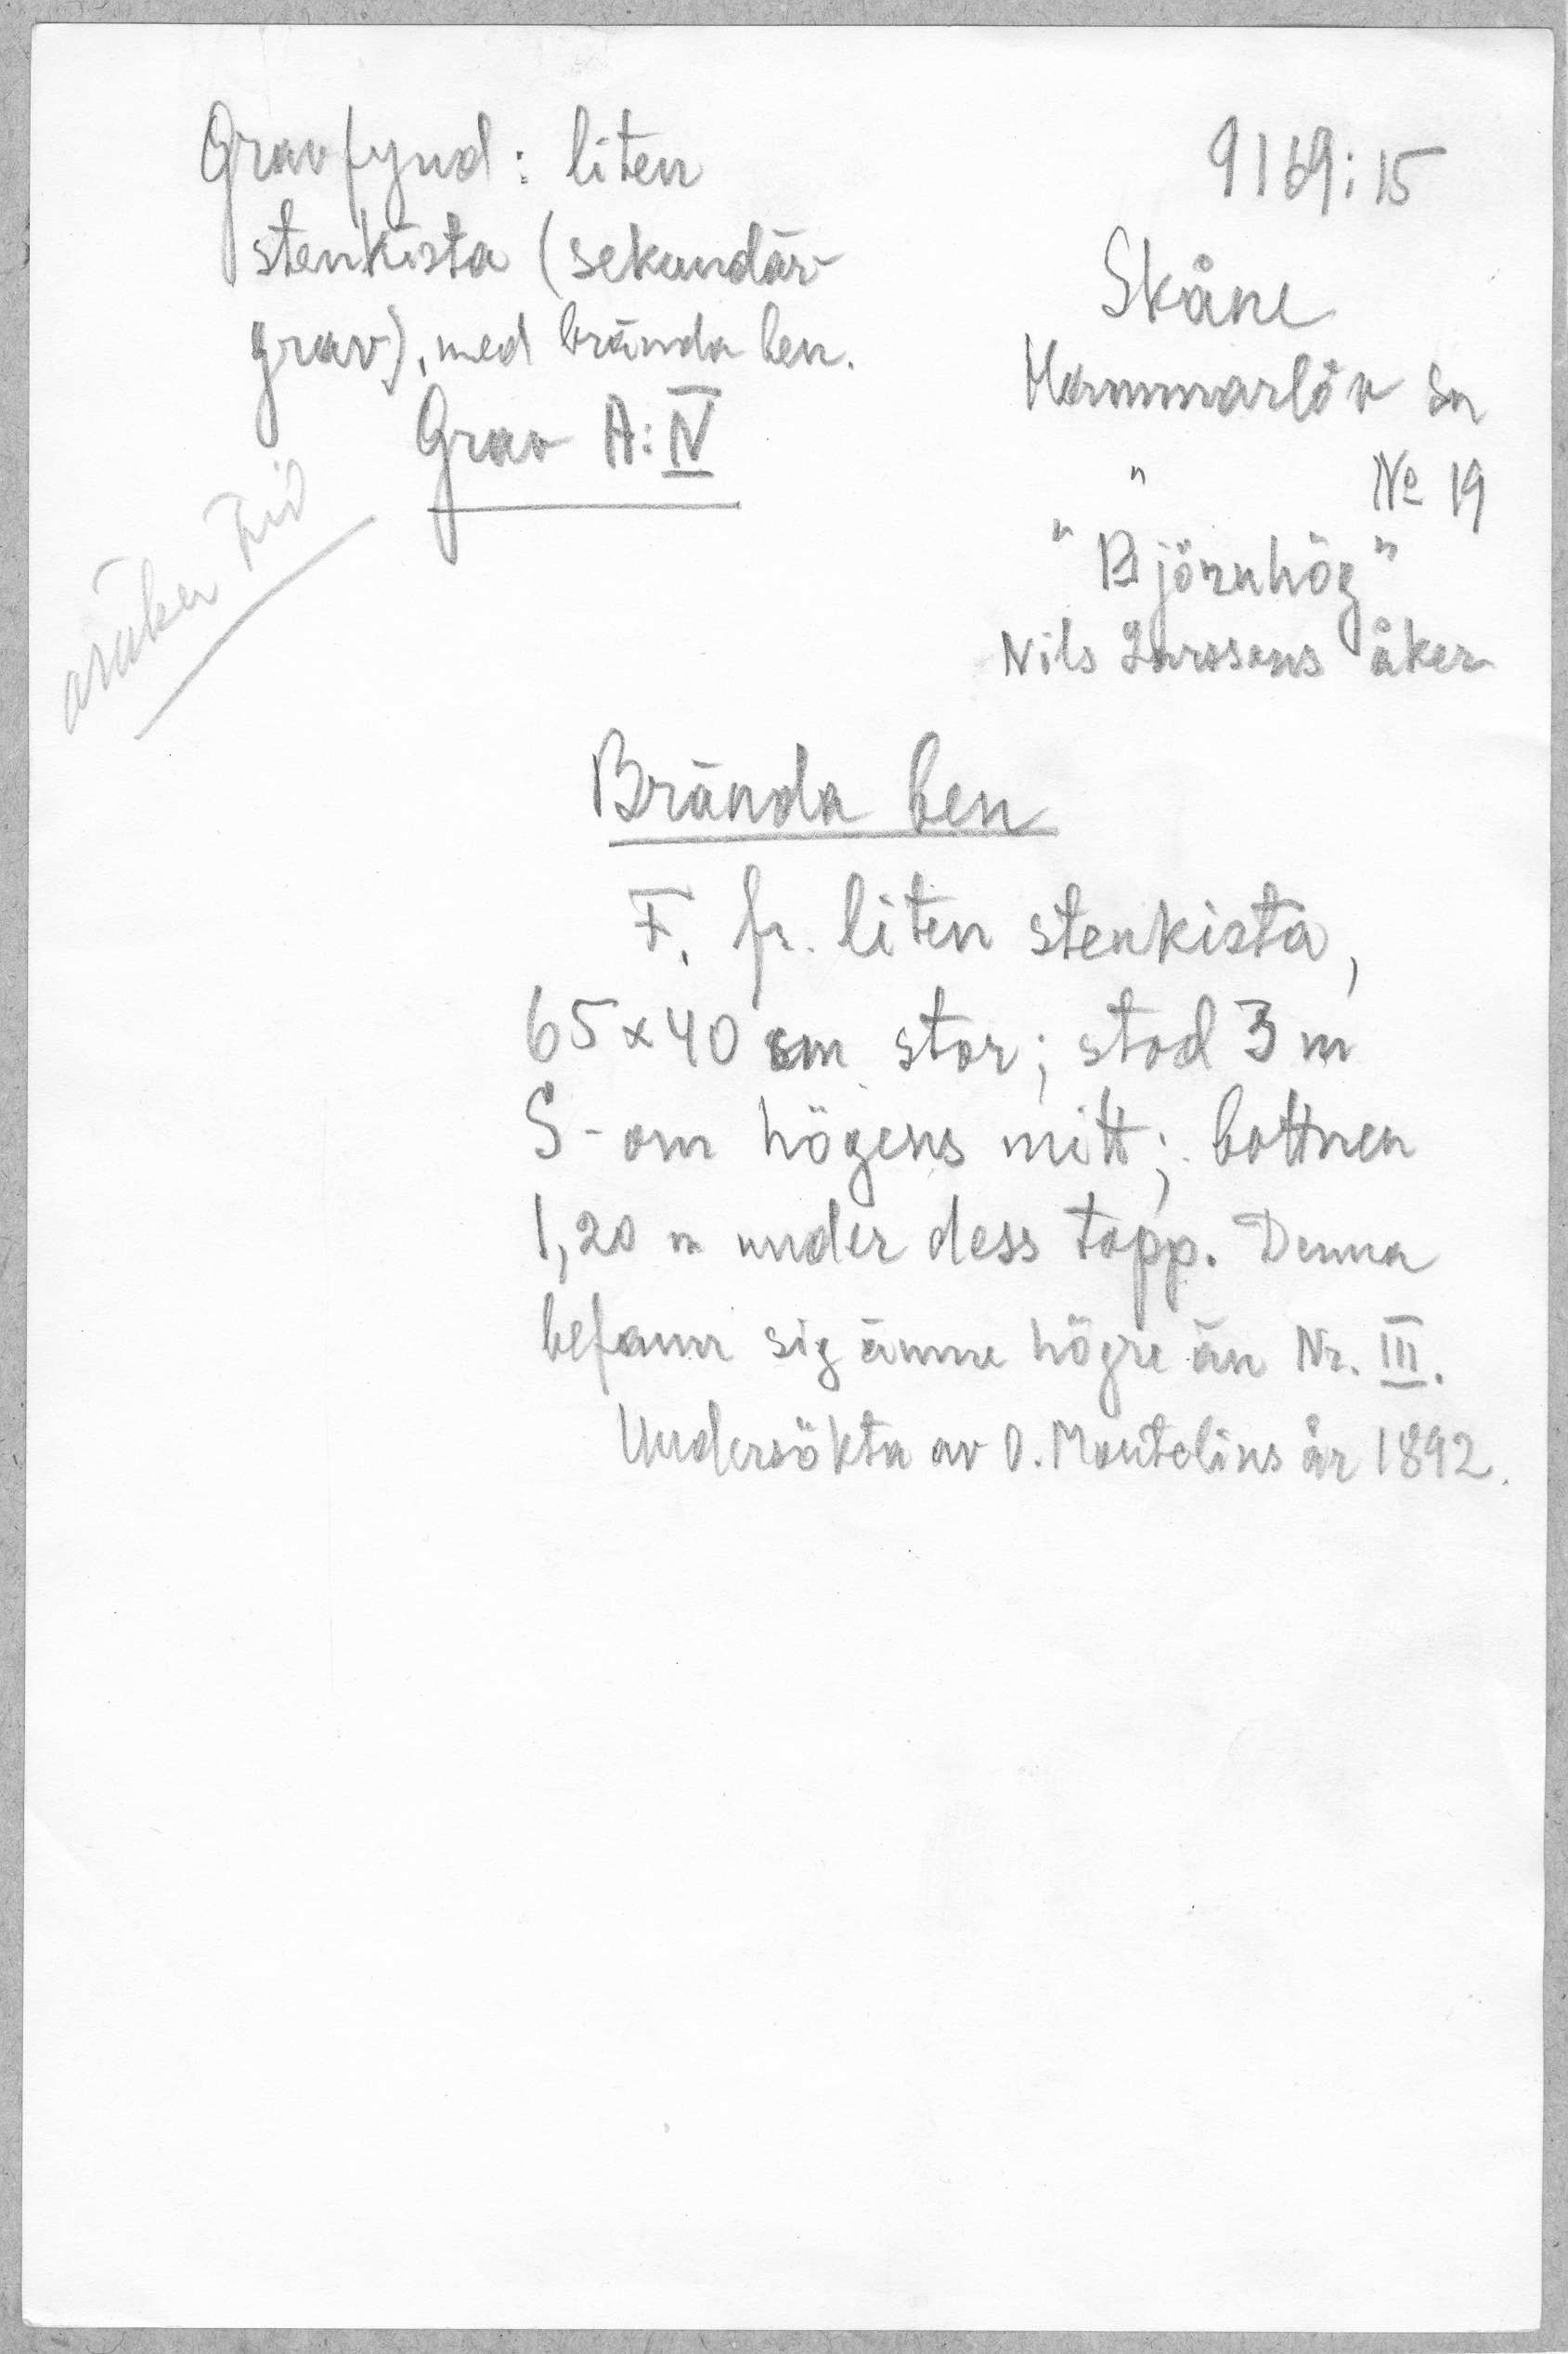 Gravfynd: liten
stenkista (sekundär-
grav), med brända ben.
Grav A:IV
osäker tid
9169:15
Skåne
Hammarlöv sn
" No 19
"Björnhög"
Nils Larssons åker
Brända ben
F. fr. liten stenkista,
65x40 cm stor; stod 3 m
S-om högens mitt; bottnen
1,20 m under dess topp. Denna
befann sig ännu högre än Nr. III.
Undersökta av O. Montelius år 1892.